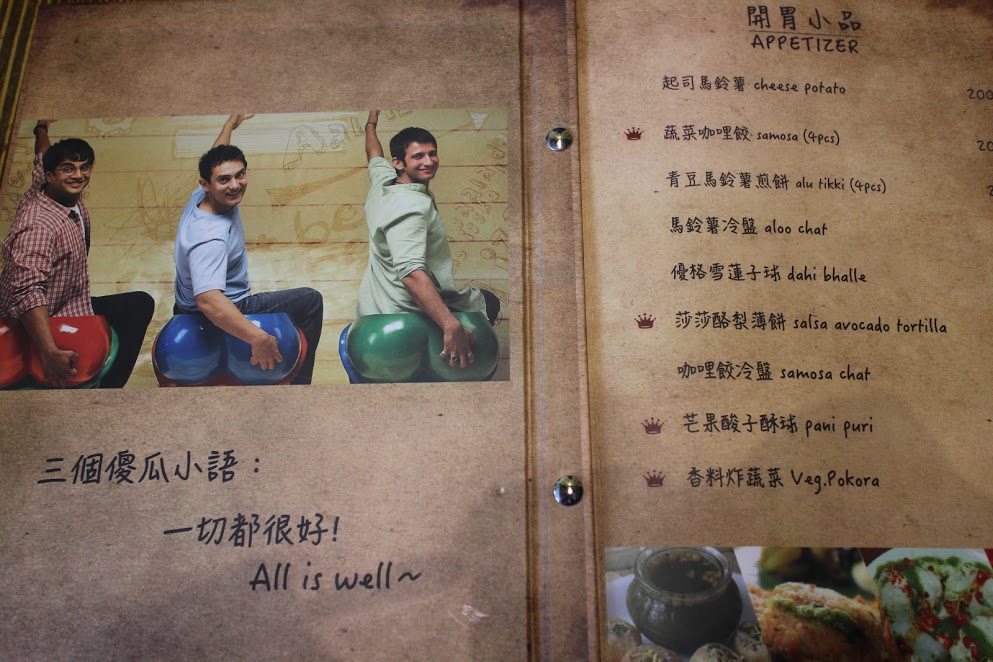 三個傻瓜小語：
一切都很好!
All is well~
開胃小品
APPETIZER
起司馬鈴薯 cheese potato 200
蔬菜咖哩餃 samosa (4pcs)
青豆馬鈴薯煎餅 alu tikki (4pcs)
馬鈴薯冷盤 aloo chat
優格雪蓮子球 dahi bhalle
莎莎酪梨薄餅 salsa avocado tortilla
咖哩餃冷盤 samosa chat
芒果酸子酥球 pani puri
香料炸蔬菜 Veg.Pokora